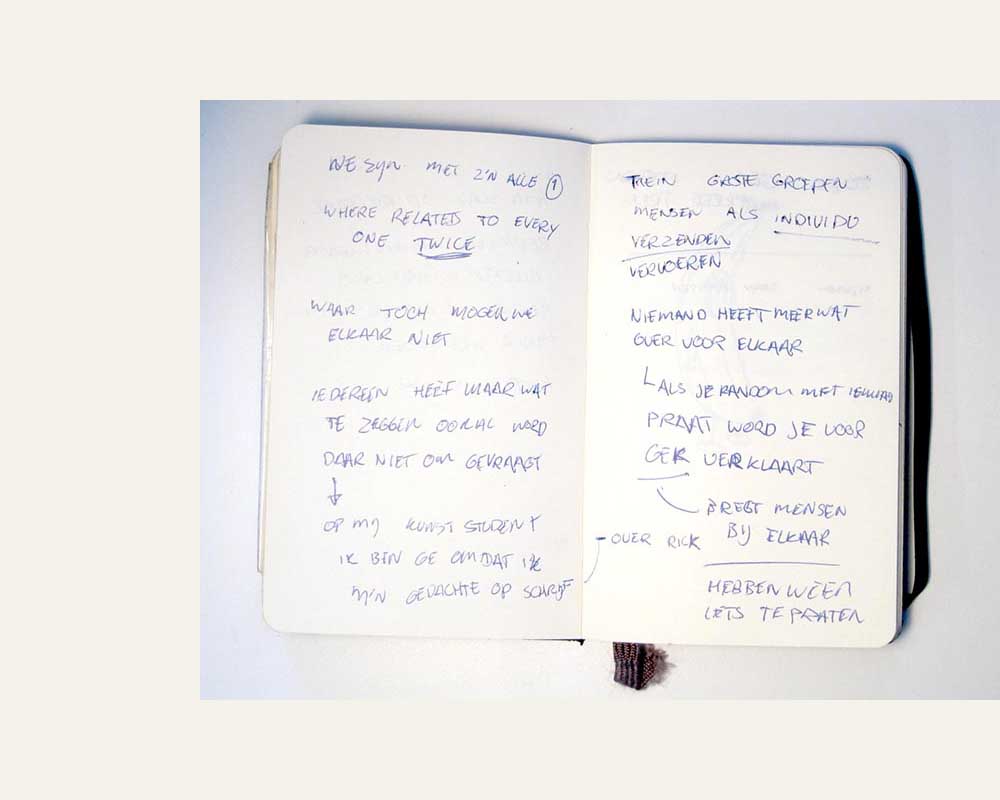 WE ZYN MET Z'N ALLE 1
WHERE RELATED TO EVERY
ONE TWICE
WAAR TOCH MOGEN WE
ELKAAR NIET
IEDEREEN HEEF MAAR WAT
TE ZEGGEN OOK AL WORD
DAAR NIET OM GEVRAAGT
OP MIJ KUNST STUDENT
IK BEN GE OMDAT IK
M'N GEDACHTE OP SCHRIJF
TREIN GROTE GROEPEN
MENSEN ALS INDIVIDU
VERZENDEN
VERVOEREN
NIEMAND HEEFT MEER WAT
OVER VOOR ELKAAR
ALS JE RANDOM MET IEMAND
PRAAT WORD JE VOOR
GEK VERKLAART
BREGT MENSEN
BIJ ELKAAR
- OVER RICK
HEBBEN WEER
IETS TE PRATEN